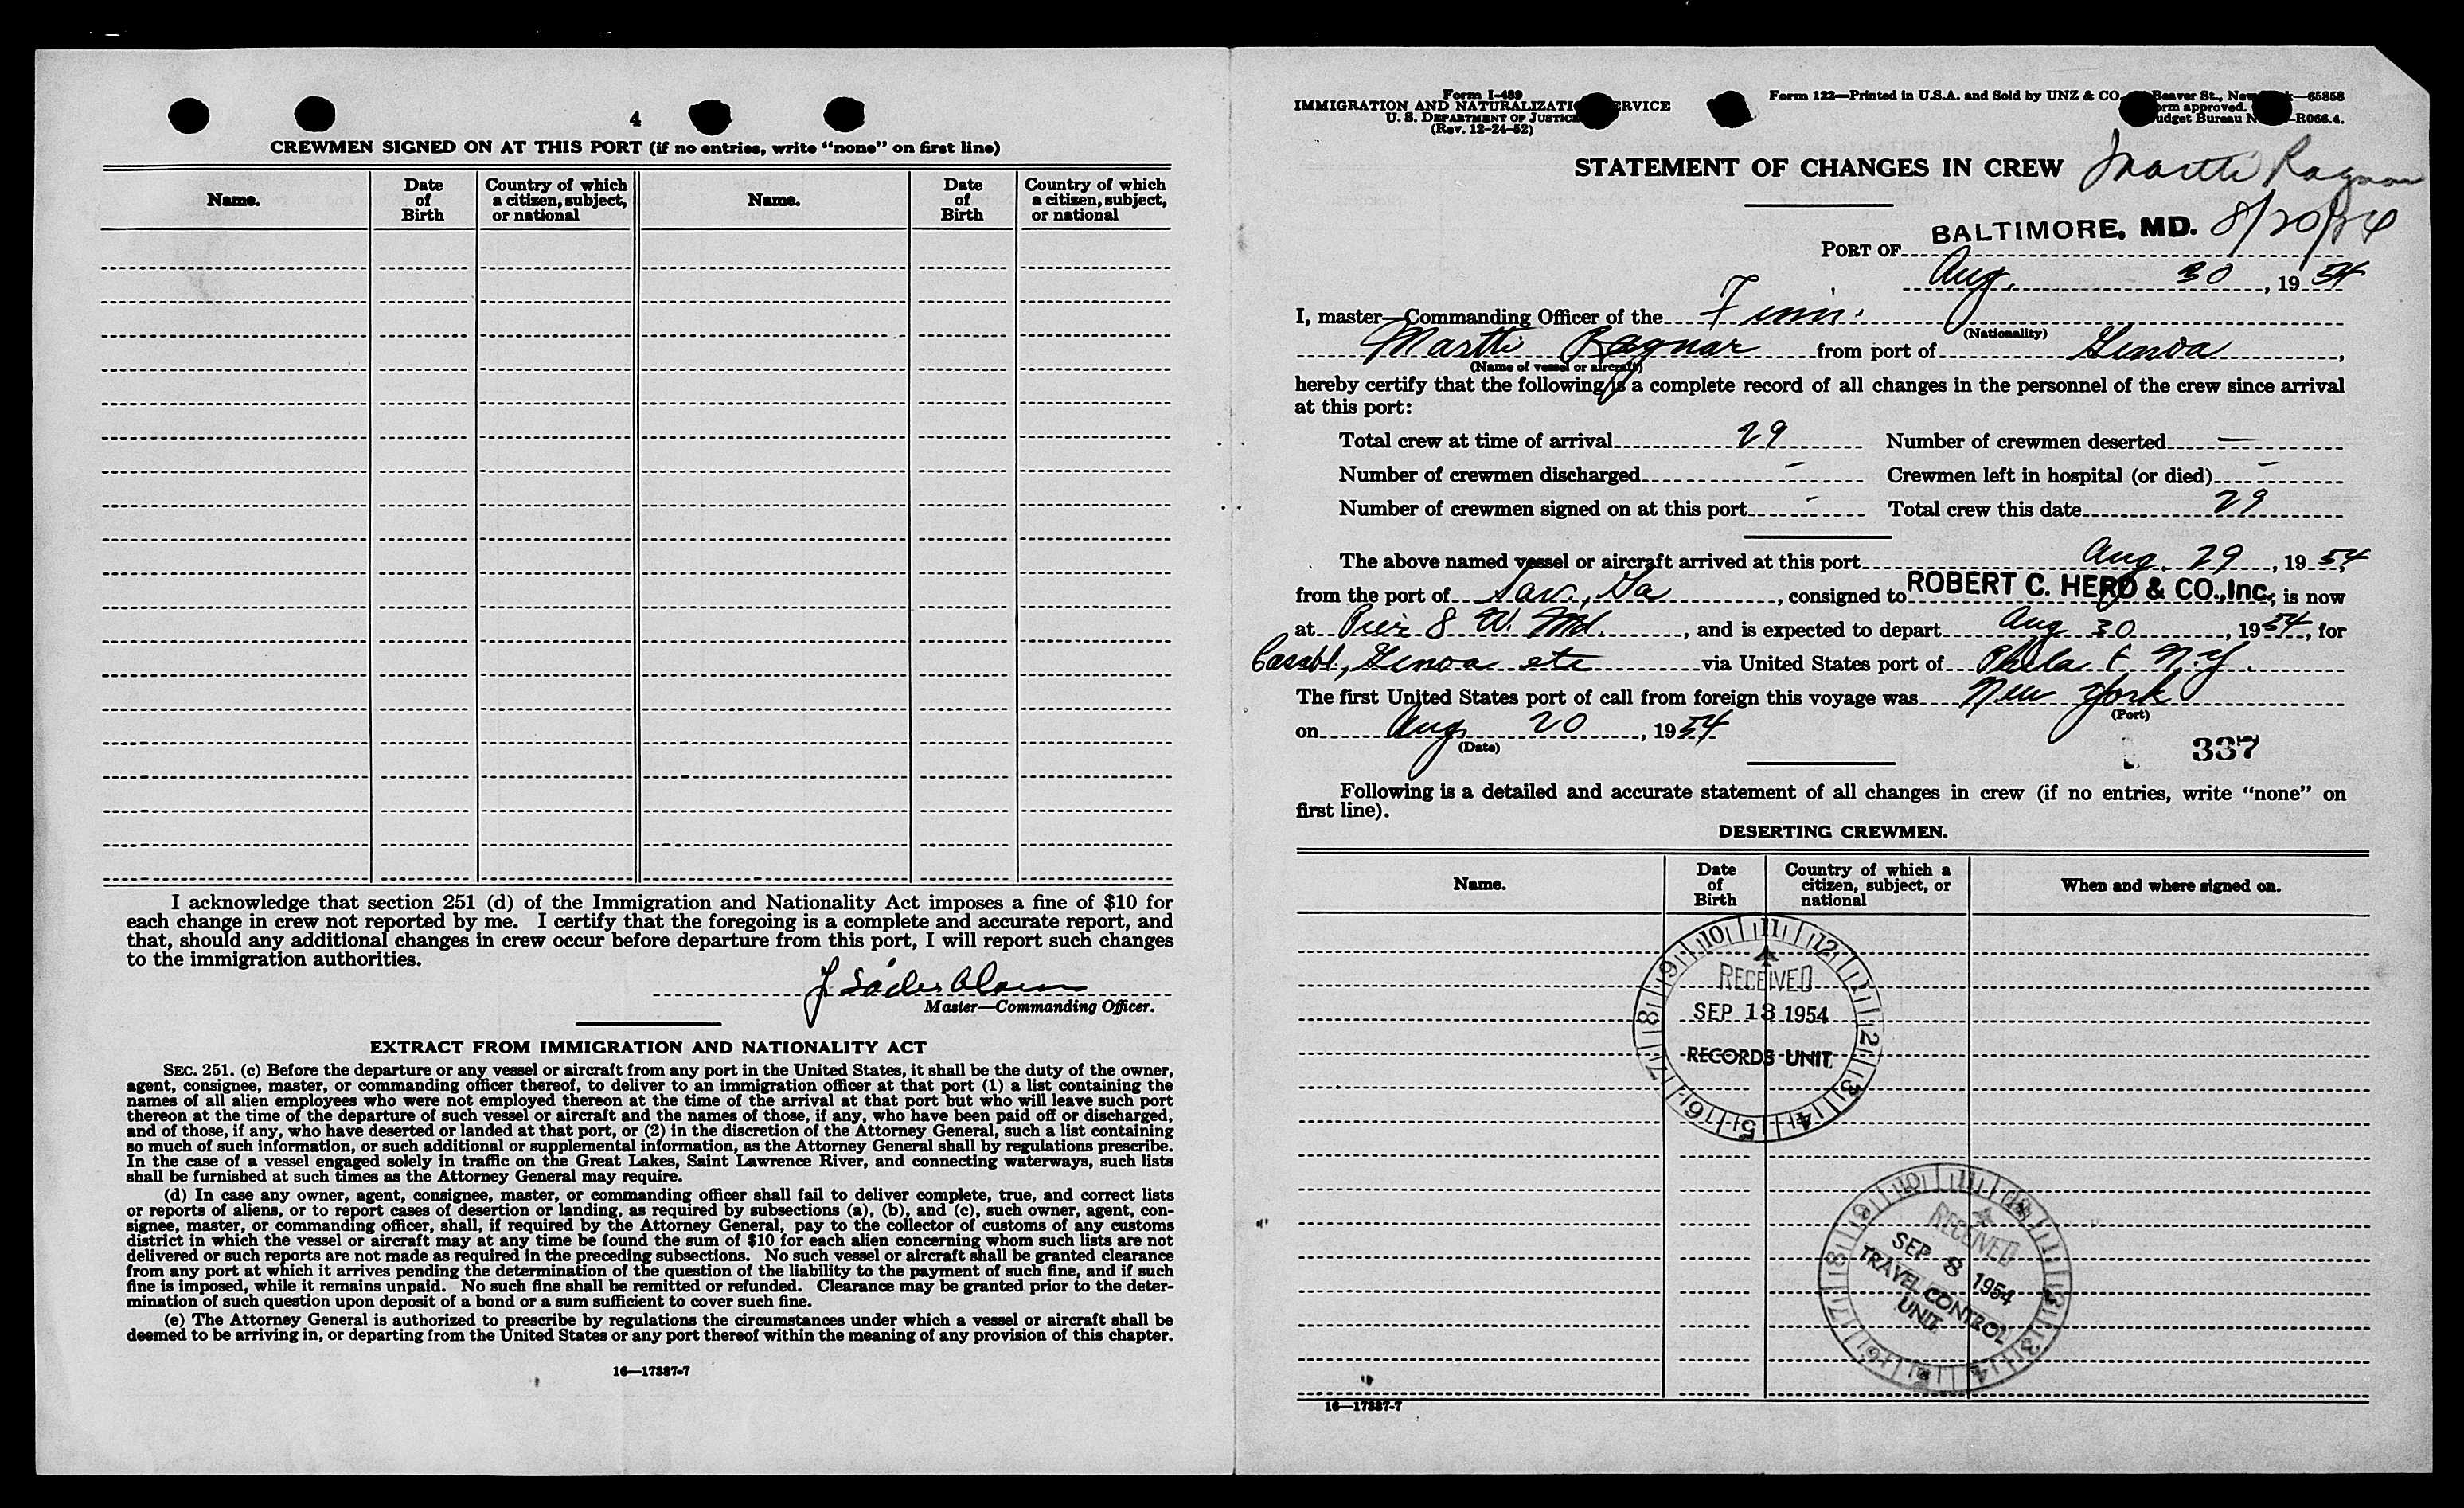 4
CREWMEN SIGNED ON AT THIS PORT (if no entries, write “none” on first line)
Name.
Date of Birth
Country of which a citizen, subject, or national
Name.
Date of Birth
Country of which a citizen, subject, or national
I acknowledge that section 251 (d) of the Immigration and Nationality Act imposes a fine of $10 for
each change in crew not reported by me. I certify that the foregoing is a complete and accurate report, and
that, should any additional changes in crew occur before departure from this port, I will report such changes
to the immigration authorities.
Master—Commanding Officer.
EXTRACT FROM IMMIGRATION AND NATIONALITY ACT
SEC. 251. (c) Before the departure or any vessel or aircraft from any port in the United States, it shall be the duty of the owner,
agent, consignee, master, or commanding officer thereof, to deliver to an immigration officer at that port (1) a list containing the
names of all alien employees who were not employed thereon at the time of the arrival at that port but who will leave such port
thereon at the time of the departure of such vessel or aircraft and the names of those, if any, who have been paid off or discharged,
and of those, if any, who have deserted or landed at that port, or (2) in the discretion of the Attorney General, such a list containing
so much of such information, or such additional or supplemental information, as the Attorney General shall by regulations prescribe.
In the case of a vessel engaged solely in traffic on the Great Lakes, Saint Lawrence River, and connecting waterways, such lists
shall be furnished at such times as the Attorney General may require.
(d) In case any owner, agent, consignee, master, or commanding officer shall fail to deliver complete, true, and correct lists
or reports of aliens, or to report cases of desertion or landing, as required by subsections (a), (b), and (c), such owner, agent, con-
signee, master, or commanding officer, shall, if required by the Attorney General, pay to the collector of customs of any customs
district in which the vessel or aircraft may at any time be found the sum of $10 for each alien concerning whom such lists are not
delivered or such reports are not made as required in the preceding subsections. No such vessel or aircraft shall be granted clearance
from any port at which it arrives pending the determination of the question of the liability to the payment of such fine, and if such
fine is imposed, while it remains unpaid. No such fine shall be remitted or refunded. Clearance may be granted prior to the deter-
mination of such question upon deposit of a bond or a sum sufficient to cover such fine.
(e) The Attorney General is authorized to prescribe by regulations the circumstances under which a vessel or aircraft shall be
deemed to be arriving in, or departing from the United States or any port thereof within the meaning of any provision of this chapter.
16—17387-7
Form I-489
IMMIGRATION AND NATURALIZATI RVICE
U. S. DEPARTMENT OF JUSTIC
(Rev. 12-24-52)
Form 122—Printed in U.S.A. and Sold by UNZ & CO. Beaver St., New —65858
orm approved.
udget Bureau N -R066.4.
STATEMENT OF CHANGES IN CREW Martti Ragnar
PORT OF BALTIMORE, MD. 8/20/54
Aug. 30, 1954
I, master—Commanding Officer of the Finn.
(Nationality)
Martti Ragnar from port of Genoa,
(Name of vessel or aircraft)
hereby certify that the following is a complete record of all changes in the personnel of the crew since arrival
at this port:
Total crew at time of arrival 29 Number of crewmen deserted —
Number of crewmen discharged - Crewmen left in hospital (or died) -
Number of crewmen signed on at this port - Total crew this date 29
The above named vessel or aircraft arrived at this port Aug. 29, 1954
from the port of Sav., Ga, consigned to ROBERT C. HERD & CO., Inc., is now
at Pier 8 W. Md., and is expected to depart Aug 30, 1954, for
Casabl., Genoa etc via United States port of Phila & N.Y.
The first United States port of call from foreign this voyage was New York
(Port)
on Aug 20, 1954
(Date)
337
Following is a detailed and accurate statement of all changes in crew (if no entries, write “none” on
first line).
DESERTING CREWMEN.
Name.
Date of Birth
Country of which a citizen, subject, or national
When and where signed on.
10 11 12 1 2 3 4 5 6 7 8 9
RECEIVED
SEP 18 1954
RECORDS UNIT
RECEIVED
SEP 8 1954
TRAVEL CONTROL
UNIT
16—17387-7